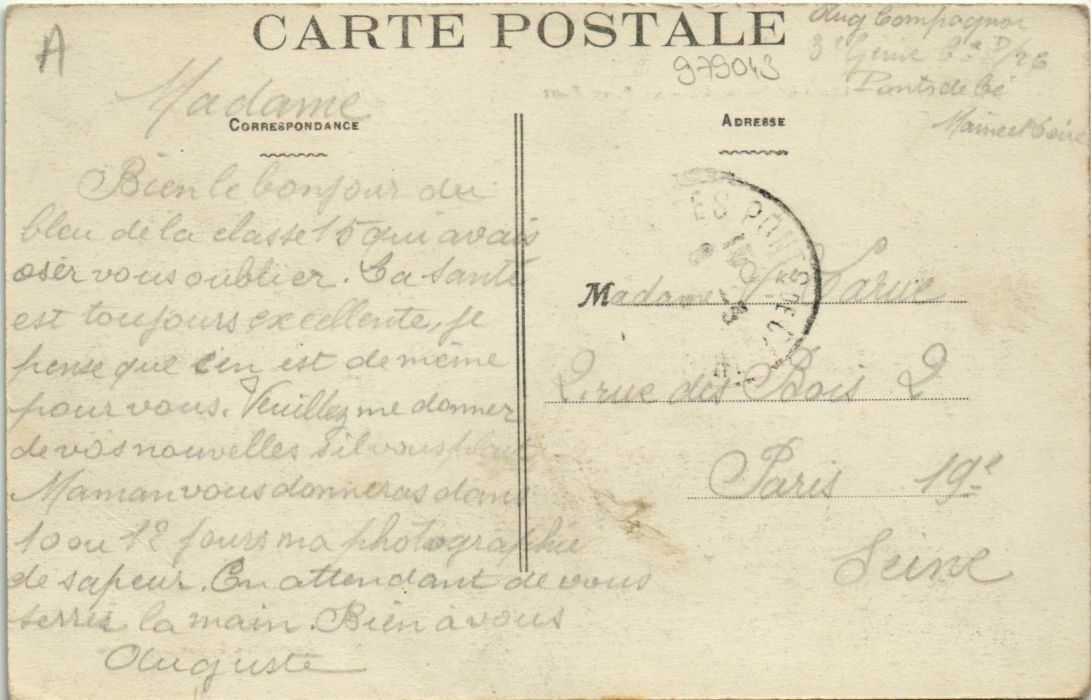 A
CARTE POSTALE
979043
Aug Compagnon
3e Génie Cie D/26
Ponts de Cé
Maine et Loire
Madame
CORRESPONDANCE
ADRESSE
Bien le bonjour du
bleu de la classe 15 qui avais
oser vous oublier. La santé
est toujours excellente, je
pense que s'en est de même
pour vous. Veuillez me donner
de vos nouvelles s'il vous plait
Maman vous donneras dans
10 ou 12 jours ma photographie
de sapeur. En attendant de vous
serrer la main. Bien à vous
Auguste
ES PONTS DE C
Madame
2, rue des Bois 2
Paris 19e
Seine